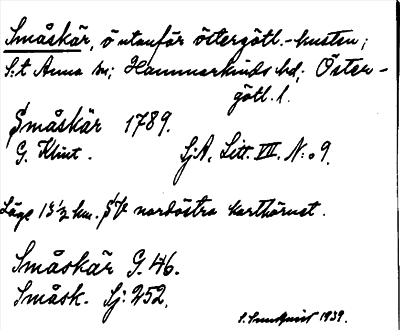 Småskär, ö utanför östergötl.-kusten;
S:t Anna sn; Hammarkinds hd; Öster-
götl. l.
Småskär 1789.
G. Klint. SjA, Litt. VII. N:o 9.
Läge 13½ km. SV nordöstra karthörnet.
Småskär G. 46.
Småsk. Sj: 252.
1939.